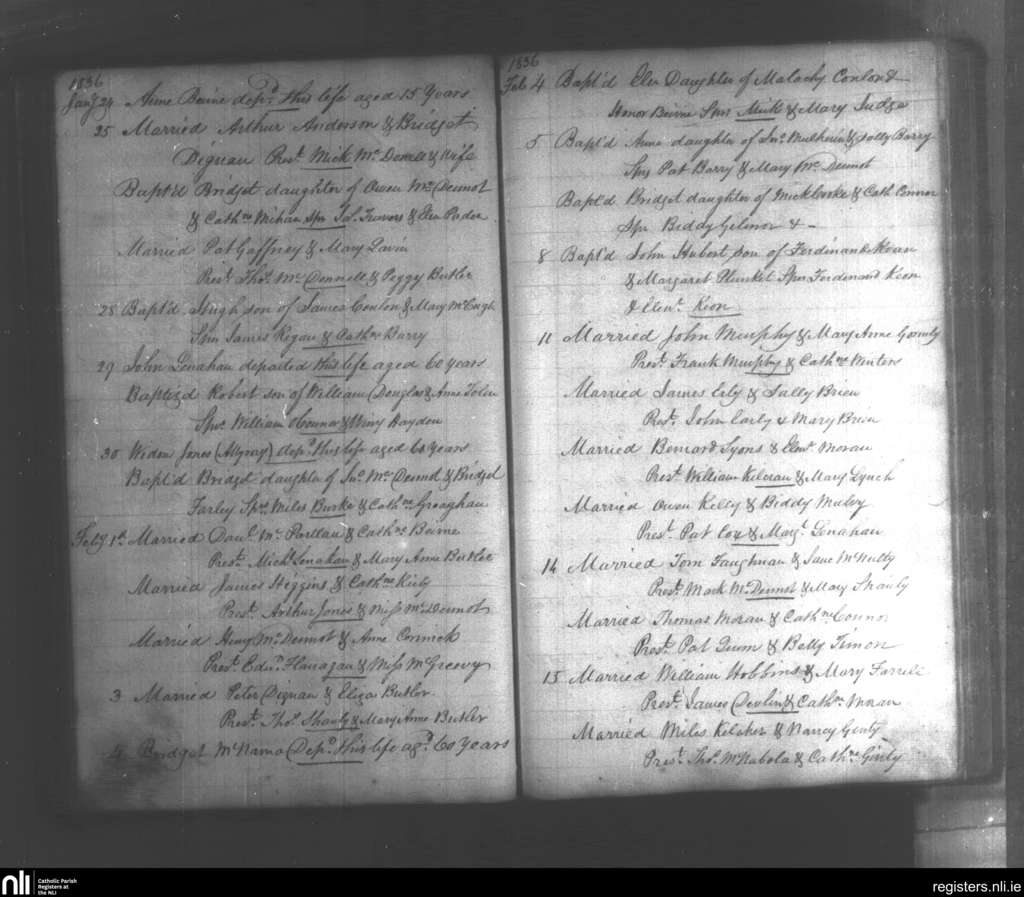 1836
Jany 24 Anne Beirne depd. this life aged 15 Years
25 Married Arthur Anderson & Bridget
Dignan Prest. Mick Mc. Donell & Wife
Bapt'd Bridget daughter of Owen Mc. Dermot
& Cathne Mihan Spr Js. Travers & Elen
Married Pat Gaffney & Mary Lavin
Prest. Thos. Mc. Donnell & Peggy Butler
28 Bapt'd Hugh son of James Conlon & Mary
Sprs James Regan & Cathne Barry
29 John Lenahan departed this life aged 60 years
Baptized Robert son of William Douglas & Anne
Sprs. William OConnor & Winy Hayden
30 Widow Jones depd. this life aged 60 years
Bapt'd Bridget daughter of Jno. Mc. Dermot & Bridget
Farley Sprs Miles Burke & Cathne
Feby 1st. Married Danl. Mc. Partlan & Cathne Beirne
Prest. Michl. Lenahan & Mary Anne Butler
Married James Higgins & Cathne Kielty
Prest. Arthur Jones & Miss Mc. Dermot
Married Henry Mc. Dermot & Anne Cormick
Prest. Edwd. Flanagan & Miss McGreevy
3 Married Peter Dignan & Eliza Butler
Prest. Thos. Shanly & Mary Anne Butler
4 Bridget McNama Depd. this life agd. 60 years
1836
Feb 4 Bapt'd Elen Daughter of Malachy Conlon &
Honor Beirne Sprs Mick & Mary Judge
5 Bapt'd Anne daughter of Jno. Mulherin & Barry
Sprs Pat Barry & Mary Mc. Dermot
Bapt'd Bridget daughter of Mick & Cath Connor
Spr Biddy Gilmor & -
8 Bapt'd John Hubert son of Ferdinand Keon
& Margaret Plunket Sprs Ferdinand Keon
& Elenr. Keon
11 Married John Murphy & Mary Anne Gormly
Prest. Frank Murphy & Cathne Winters
Married James Erly & Sally Brien
Prest. John Early & Mary Brien
Married Bernard Lyons & Elenr. Moran
Prest. William Kilcran & Mary Lynch
Married Owen Kelly & Biddy Mulvy
Prest. Pat Cox & Margt. Lenahan
14 Married Tom Faughnan & Jane McNulty
Prest. Mark Mc. Dermot & Mary Shanly
Married Thomas Moran & Cathne Connor
Prest. Pat Quin & Betty Timon
15 Married William Hobbins & Mary Farrell
Prest. James Devlin & Cathne Moran
Married Miles Kelaher & Nancy Ginty
Prest. Thos. McNabola & Cathne Ginty
nli
Catholic Parish
Registers at
the NLI
registers.nli.ie